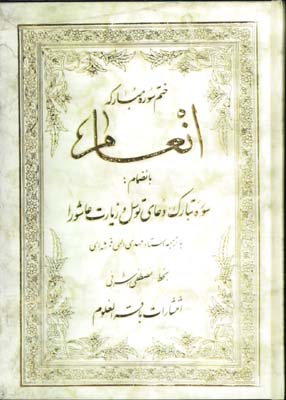 ختم سوره مبارکه
انعام
بانضمام:
سوره تبارک، دعای توسل و زیارت عاشورا
با ترجمه استاد مهدی الهی قمشه‌ای
بخط مصطفی اشرفی
انتشارات باقرالعلوم